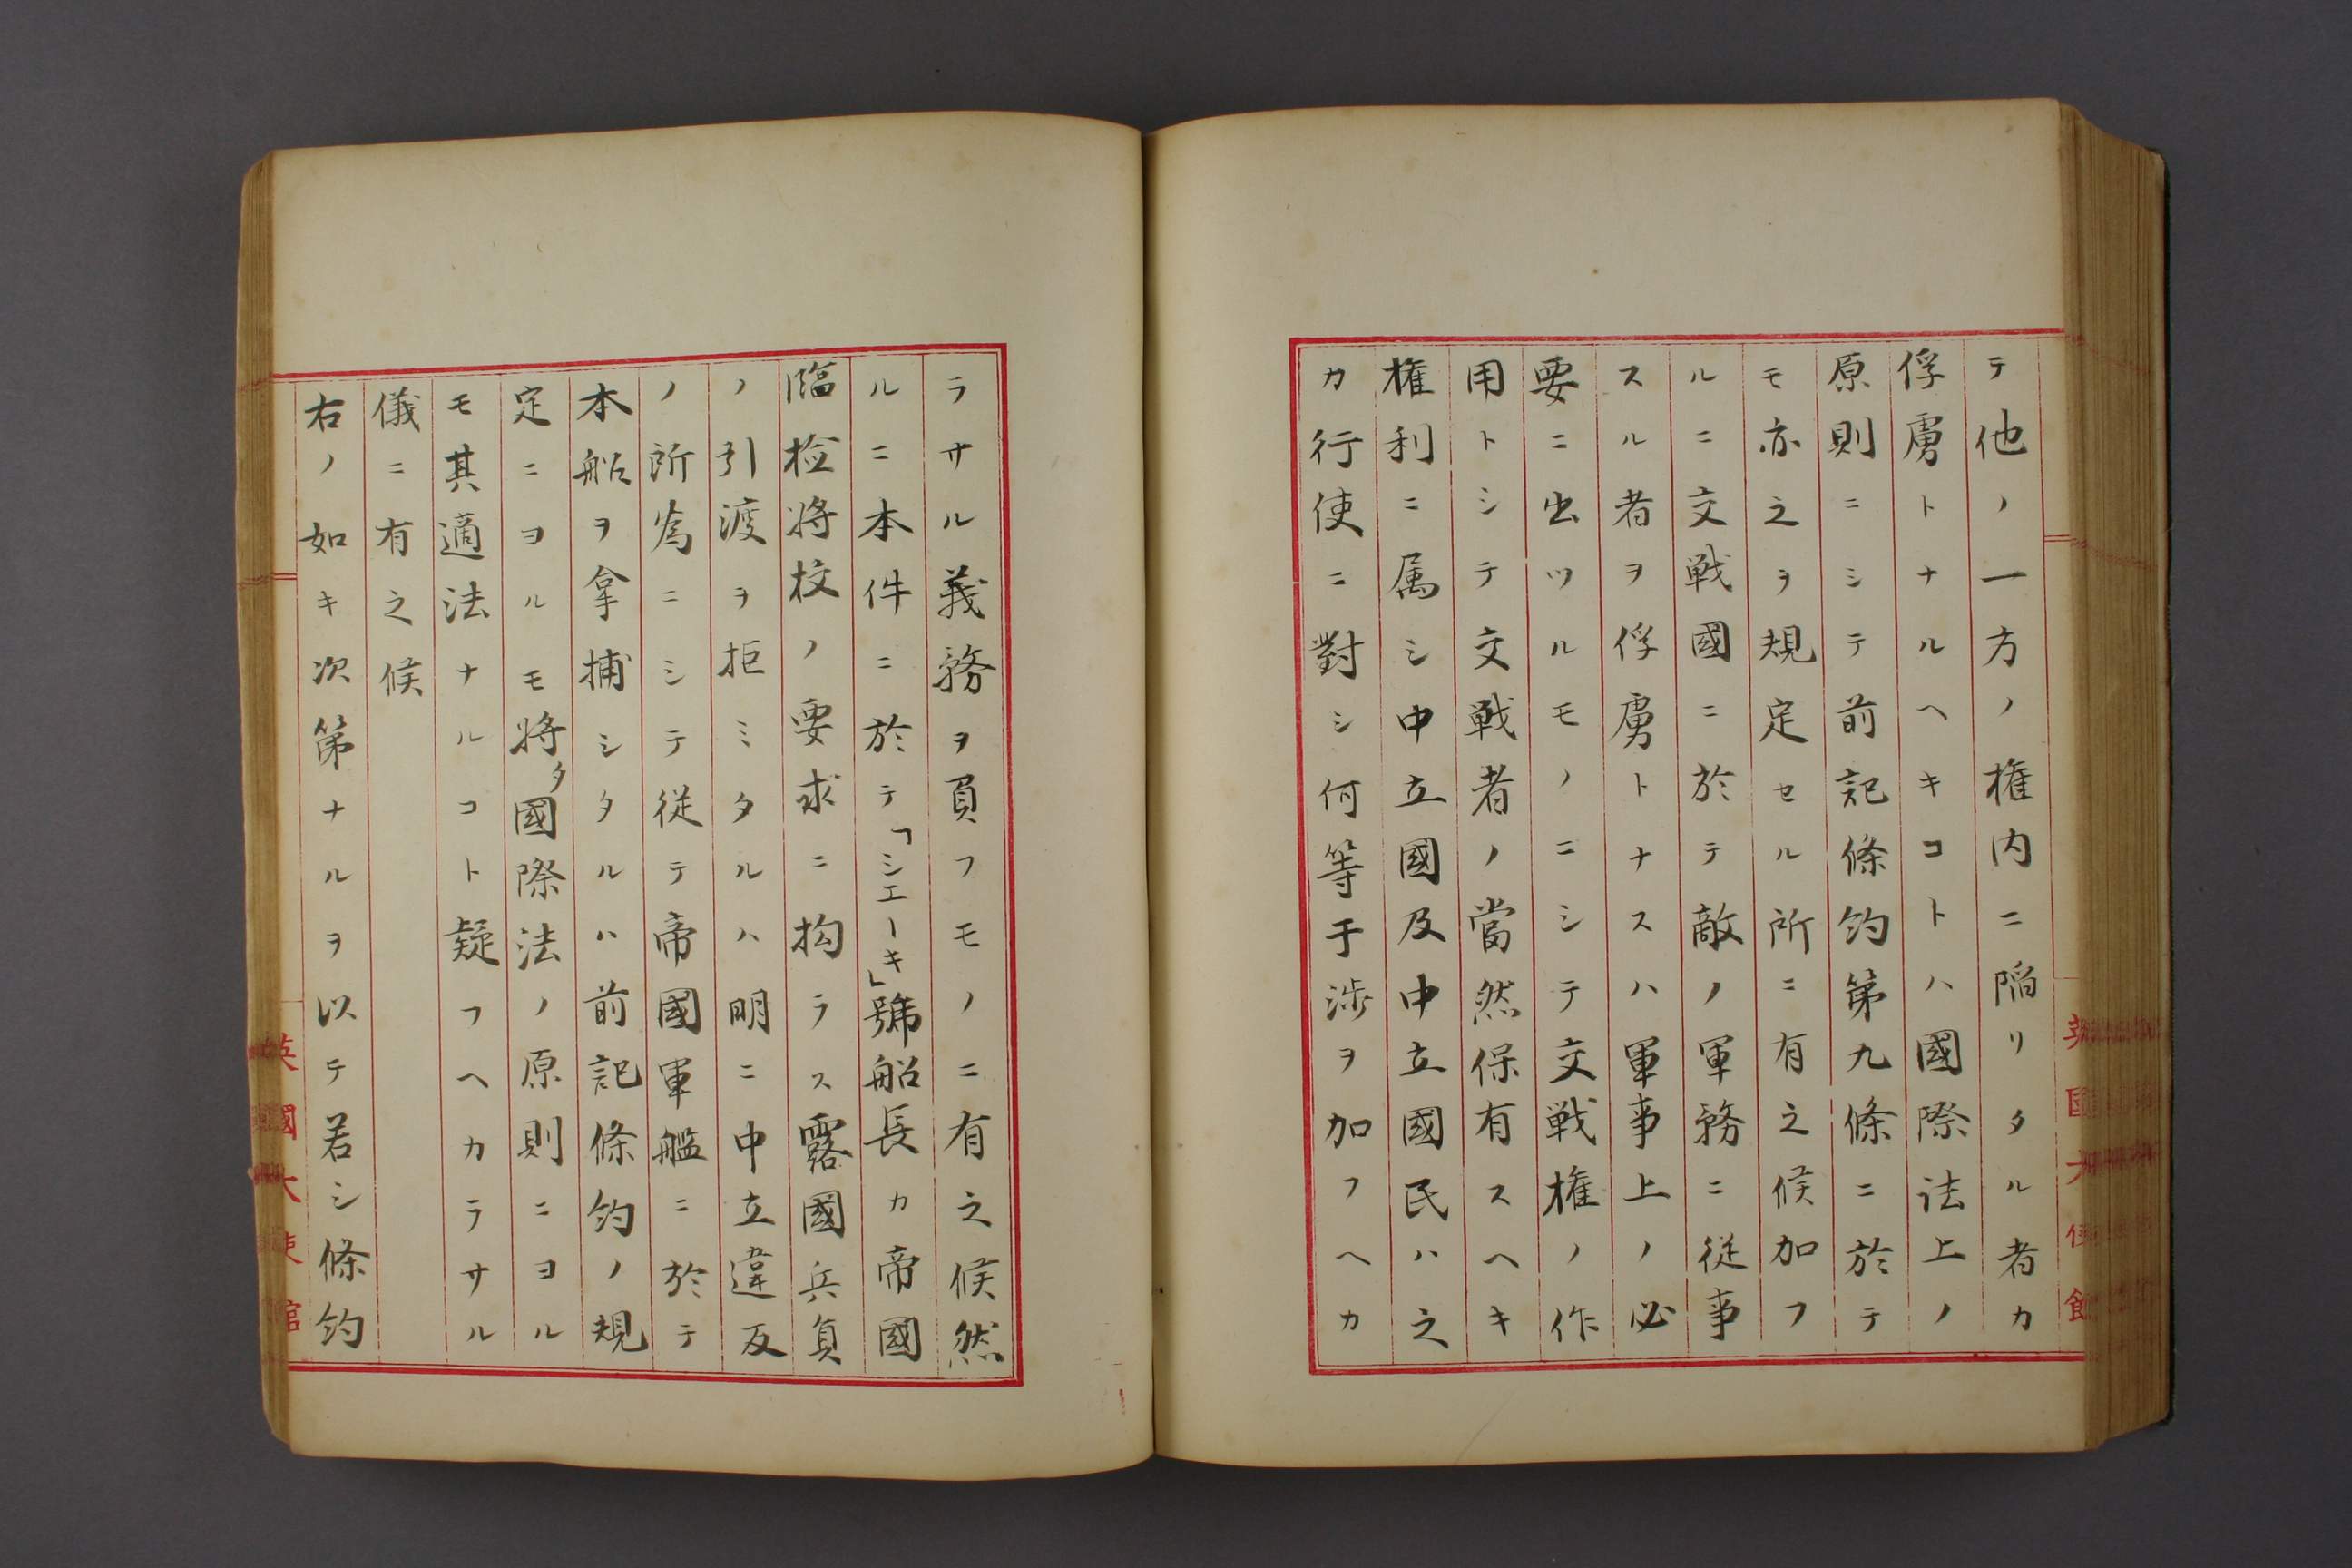 テ他ノ一方ノ権内ニ陥リタル者カ
俘虜トナルヘキコトハ國際法上ノ
原則ニシテ前記條約第九條ニ於テ
モ亦之ヲ規定セル所ニ有之候加フ
ルニ交戦國ニ於テ敵ノ軍務ニ従事
スル者ヲ俘虜トナスハ軍事上ノ必
要ニ出ツルモノニシテ交戦権ノ作
用トシテ交戦者ノ當然保有スヘキ
権利ニ属シ中立國及中立國民ハ之
カ行使ニ對シ何等干渉ヲ加フヘカ
ラサル義務ヲ負フモノニ有之候然
ルニ本件ニ於テ「シエーキ」號船長カ帝國
臨検将校ノ要求ニ拘ラス露國兵負
ノ引渡ヲ拒ミタルハ明ニ中立違反
ノ所為ニシテ従テ帝國軍艦ニ於テ
本船ヲ拿捕シタルハ前記條約ノ規
定ニヨルモ将タ國際法ノ原則ニヨル
モ其適法ナルコト疑フヘカラサル
儀ニ有之候
右ノ如キ次第ナルヲ以テ若シ條約
英國大使館